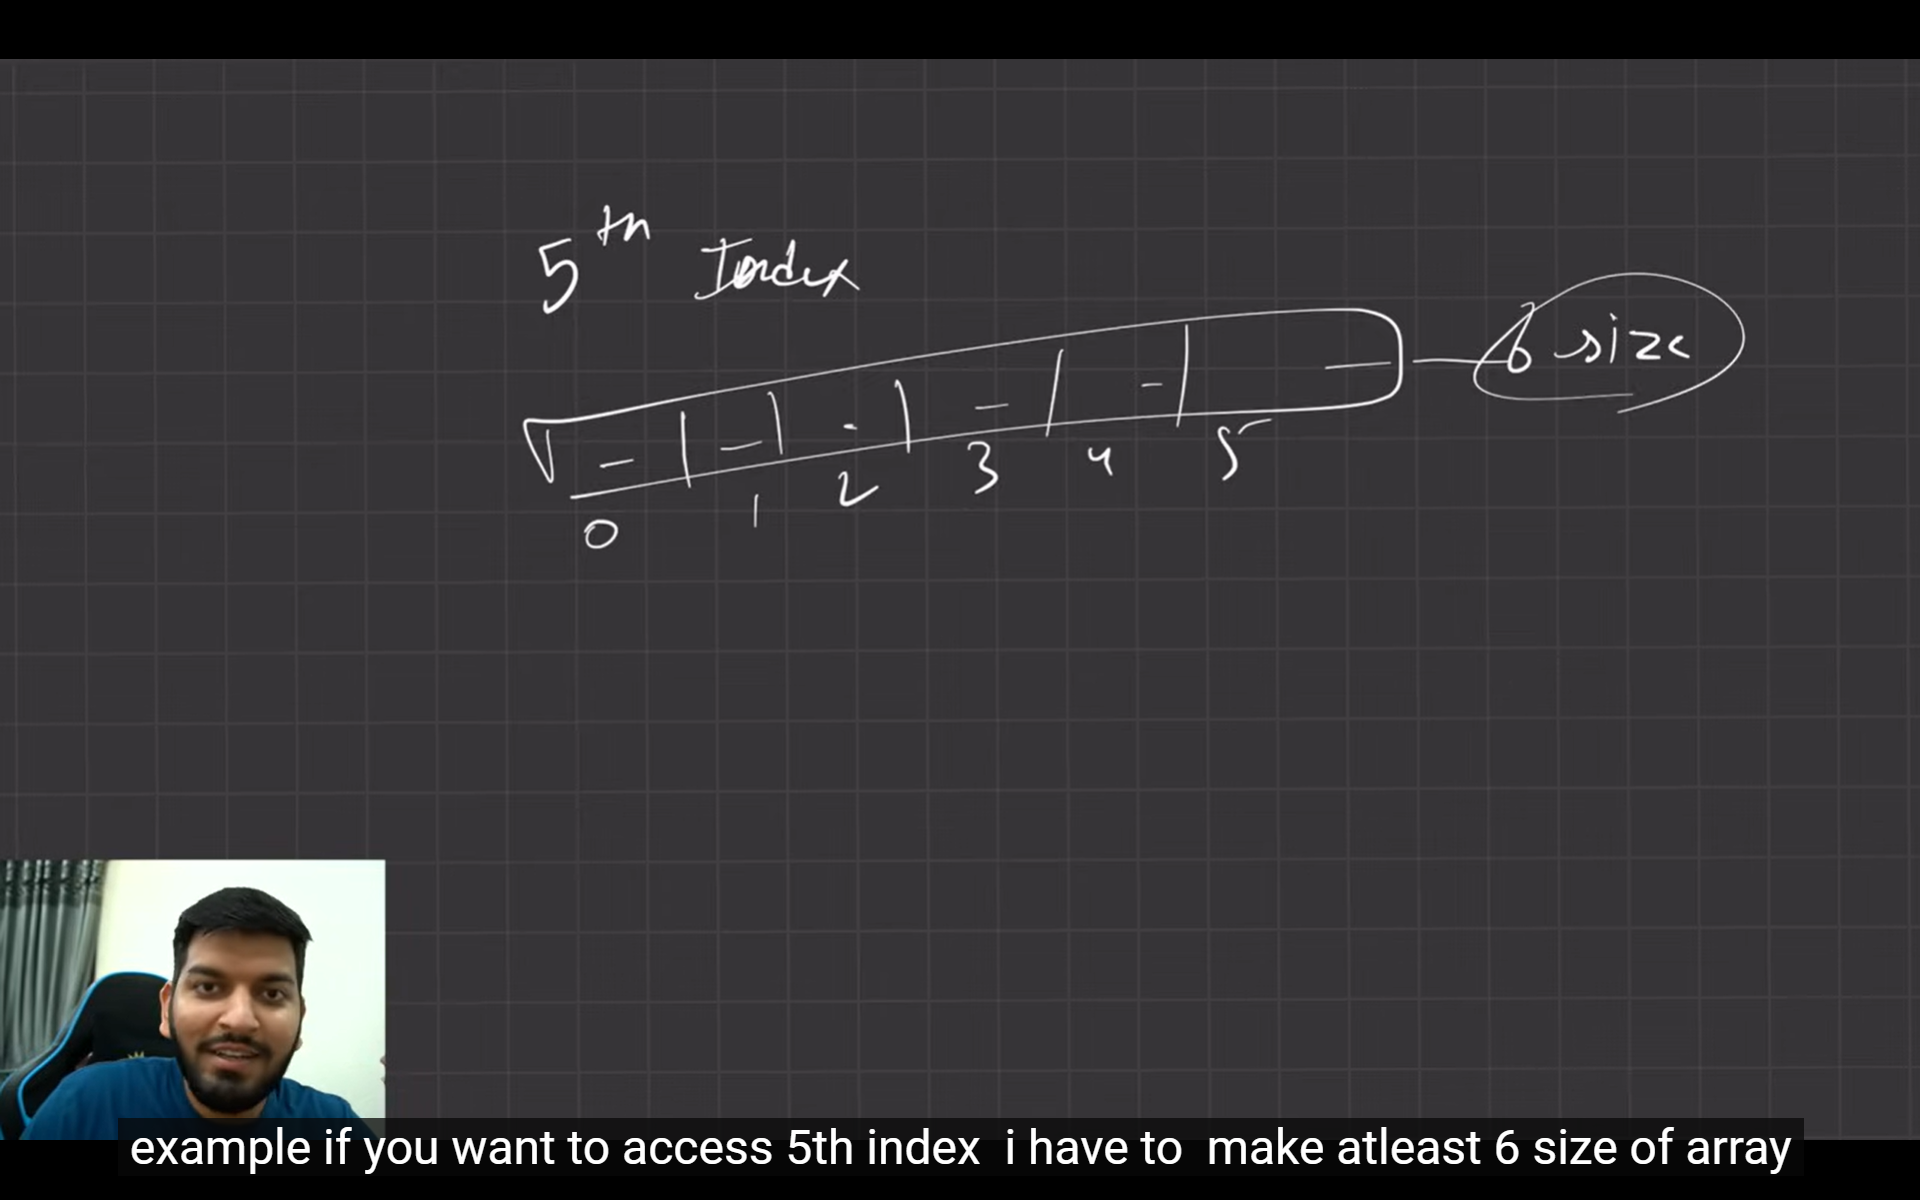 5th Index
6 size
0 1 2 3 4 5
example if you want to access 5th index i have to make atleast 6 size of array